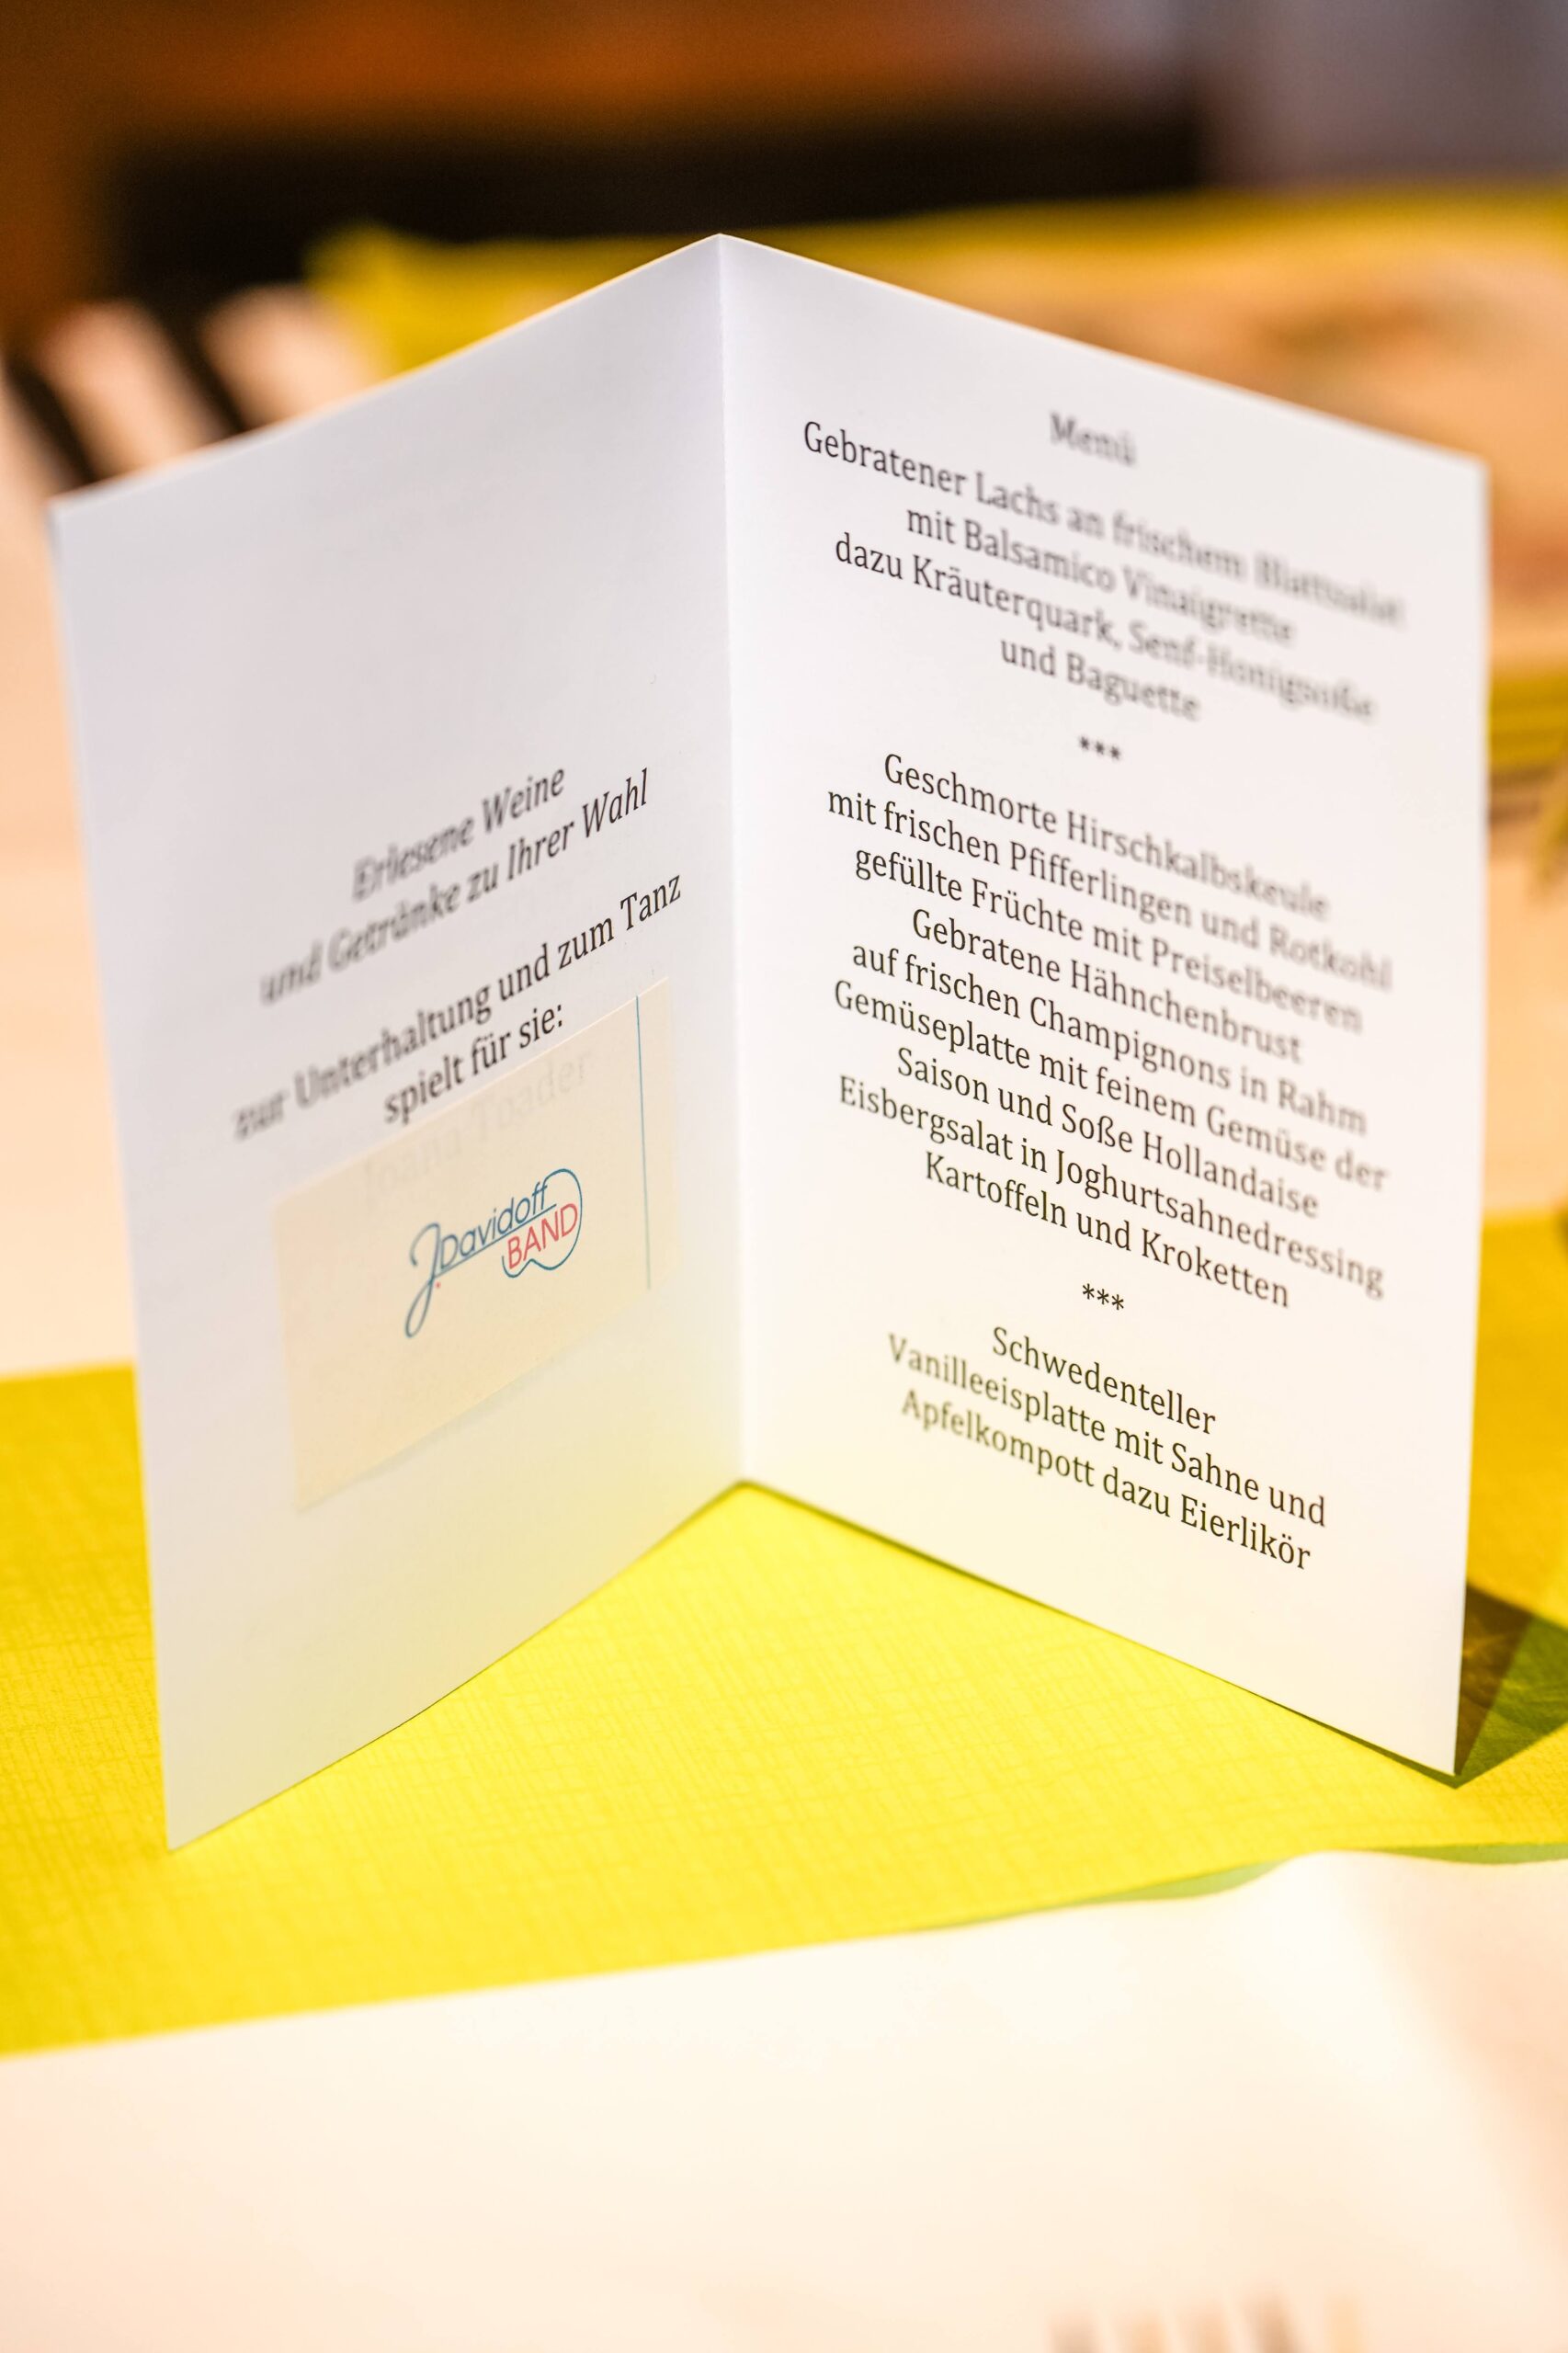 Erlesene Weine
und Getränke zu Ihrer Wahl
zur Unterhaltung und zum Tanz
spielt für sie:
Ioana Toader
J. Davidoff
BAND
Menü
Gebratener Lachs an frischem Blattsalat
mit Balsamico Vinaigrette
dazu Kräuterquark, Senf-Honigsoße
und Baguette
***
Geschmorte Hirschkalbskeule
mit frischen Pfifferlingen und Rotkohl
gefüllte Früchte mit Preiselbeeren
Gebratene Hähnchenbrust
auf frischen Champignons in Rahm
Gemüseplatte mit feinem Gemüse der
Saison und Soße Hollandaise
Eisbergsalat in Joghurtsahnedressing
Kartoffeln und Kroketten
***
Schwedenteller
Vanilleeisplatte mit Sahne und
Apfelkompott dazu Eierlikör